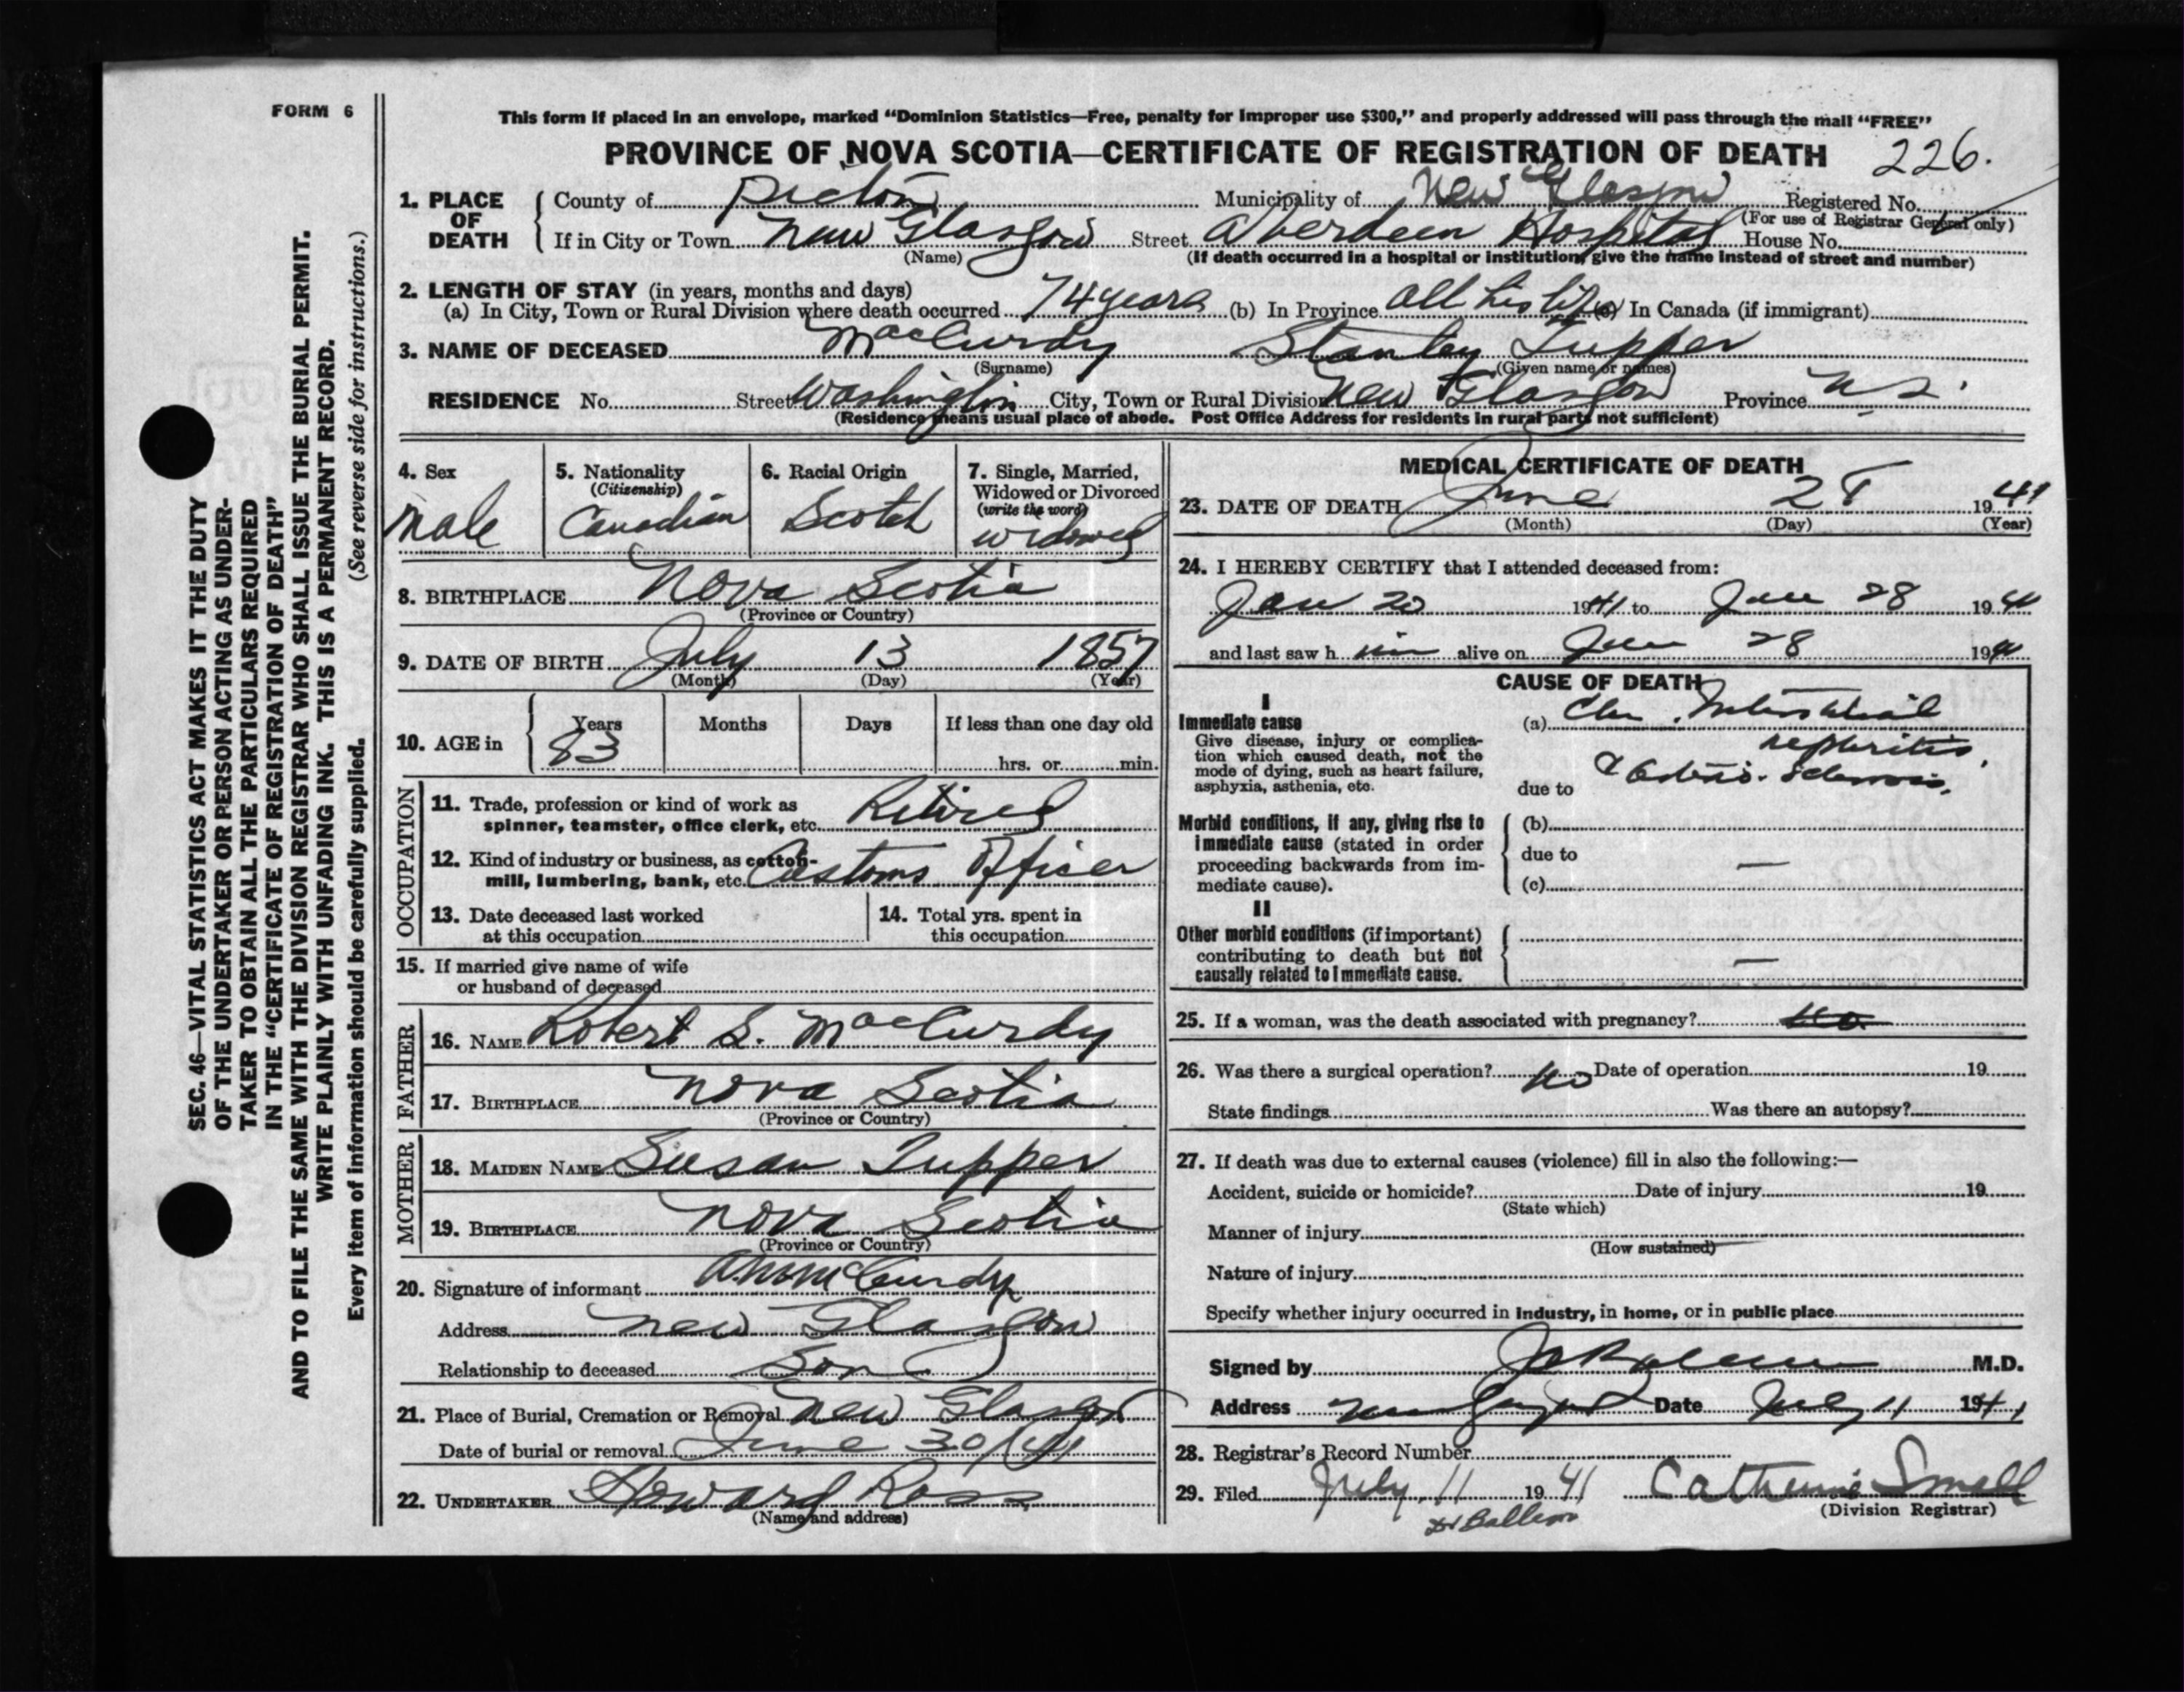 FORM 6
This form if placed in an envelope, marked “Dominion Statistics—Free, penalty for improper use $300,” and properly addressed will pass through the mail “FREE”
PROVINCE OF NOVA SCOTIA—CERTIFICATE OF REGISTRATION OF DEATH 226.
1. PLACE OF DEATH
County of Pictou Municipality of New Glasgow Registered No.
(For use of Registrar General only)
If in City or Town New Glasgow Street Aberdeen Hospital House No.
(Name) (If death occurred in a hospital or institution, give the name instead of street and number)
2. LENGTH OF STAY (in years, months and days)
(a) In City, Town or Rural Division where death occurred 74 years (b) In Province All his life (c) In Canada (if immigrant)
3. NAME OF DECEASED MacCurdy Stanley Tupper
(Surname) (Given name or names)
RESIDENCE No. Street Washington City, Town or Rural Division New Glasgow Province N S.
(Residence means usual place of abode. Post Office Address for residents in rural parts not sufficient)
4. Sex
male
5. Nationality
(Citizenship)
Canadian
6. Racial Origin
Scotch
7. Single, Married,
Widowed or Divorced
(write the word)
widowed
8. BIRTHPLACE Nova Scotia
(Province or Country)
9. DATE OF BIRTH July 13 1857
(Month) (Day) (Year)
10. AGE in
Years Months Days If less than one day old
83 hrs. or min.
OCCUPATION
11. Trade, profession or kind of work as
spinner, teamster, office clerk, etc. Retired
12. Kind of industry or business, as cotton-
mill, lumbering, bank, etc. Customs Officer
13. Date deceased last worked
at this occupation
14. Total yrs. spent in
this occupation
15. If married give name of wife
or husband of deceased
FATHER
16. NAME Robert S. MacCurdy
17. BIRTHPLACE Nova Scotia
(Province or Country)
MOTHER
18. MAIDEN NAME Susan Tupper
19. BIRTHPLACE Nova Scotia
(Province or Country)
20. Signature of informant McCurdy
Address New Glasgow
Relationship to deceased Son
21. Place of Burial, Cremation or Removal New Glasgow
Date of burial or removal June 30/41
22. UNDERTAKER Howard Ross
(Name and address)
MEDICAL CERTIFICATE OF DEATH
23. DATE OF DEATH June 28 1941
(Month) (Day) (Year)
24. I HEREBY CERTIFY that I attended deceased from:
Jan 20 1941 to June 28 1941
and last saw h im alive on June 28 1941
CAUSE OF DEATH
I
Immediate cause
Give disease, injury or complica-
tion which caused death, not the
mode of dying, such as heart failure,
asphyxia, asthenia, etc.
(a) Chr. Interstitial
nephritis,
due to & Arterio-sclerosis.
Morbid conditions, if any, giving rise to
immediate cause (stated in order
proceeding backwards from im-
mediate cause).
(b)
due to —
(c)
II
Other morbid conditions (if important)
contributing to death but not
causally related to immediate cause.
—
25. If a woman, was the death associated with pregnancy? No
26. Was there a surgical operation? No Date of operation 19
State findings Was there an autopsy?
27. If death was due to external causes (violence) fill in also the following:—
Accident, suicide or homicide? Date of injury 19
(State which)
Manner of injury
(How sustained)
Nature of injury
Specify whether injury occurred in industry, in home, or in public place
Signed by M.D.
Address New Glasgow Date July 11 1941
28. Registrar's Record Number
29. Filed July 11 1941 Catherine Small
(Division Registrar)
SEC. 46—VITAL STATISTICS ACT MAKES IT THE DUTY
OF THE UNDERTAKER OR PERSON ACTING AS UNDER-
TAKER TO OBTAIN ALL THE PARTICULARS REQUIRED
IN THE “CERTIFICATE OF REGISTRATION OF DEATH”
AND TO FILE THE SAME WITH THE DIVISION REGISTRAR WHO SHALL ISSUE THE BURIAL PERMIT.
WRITE PLAINLY WITH UNFADING INK. THIS IS A PERMANENT RECORD.
Every item of information should be carefully supplied. (See reverse side for instructions.)